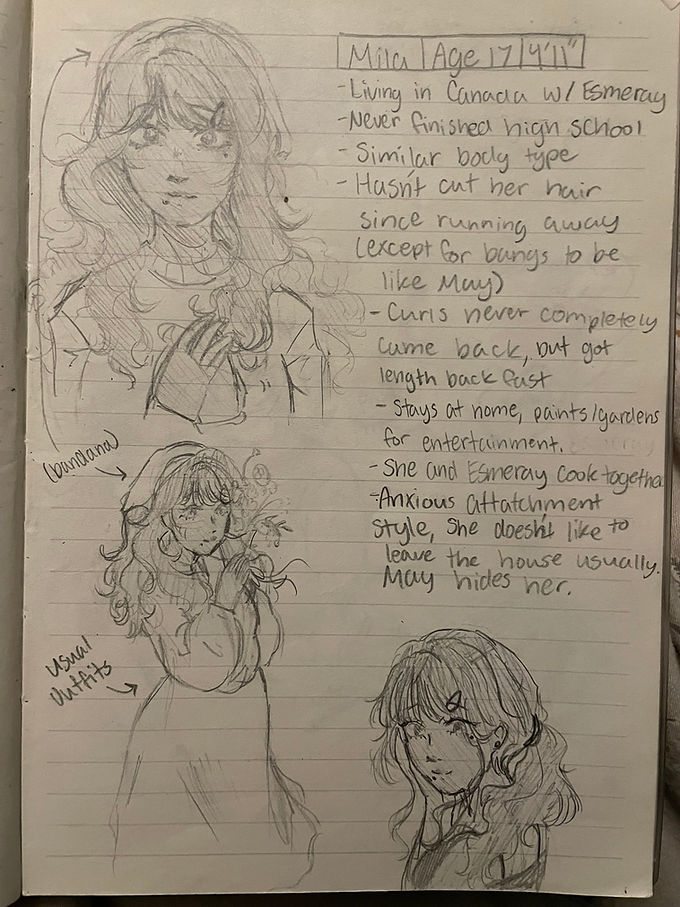 Mila | Age 17 | 4'11"
- Living in Canada w/ Esmeray
- Never finished high school
- Similar body type
- Hasn't cut her hair
since running away
(except for bangs to be
like May)
- Curls never completely
came back, but got
length back fast
- Stays at home, paints/gardens
for entertainment.
- She and Esmeray cook together
- Anxious attatchment
style, she doesn't like to
leave the house usually.
May hides her.
(bandana)
usual
outfits